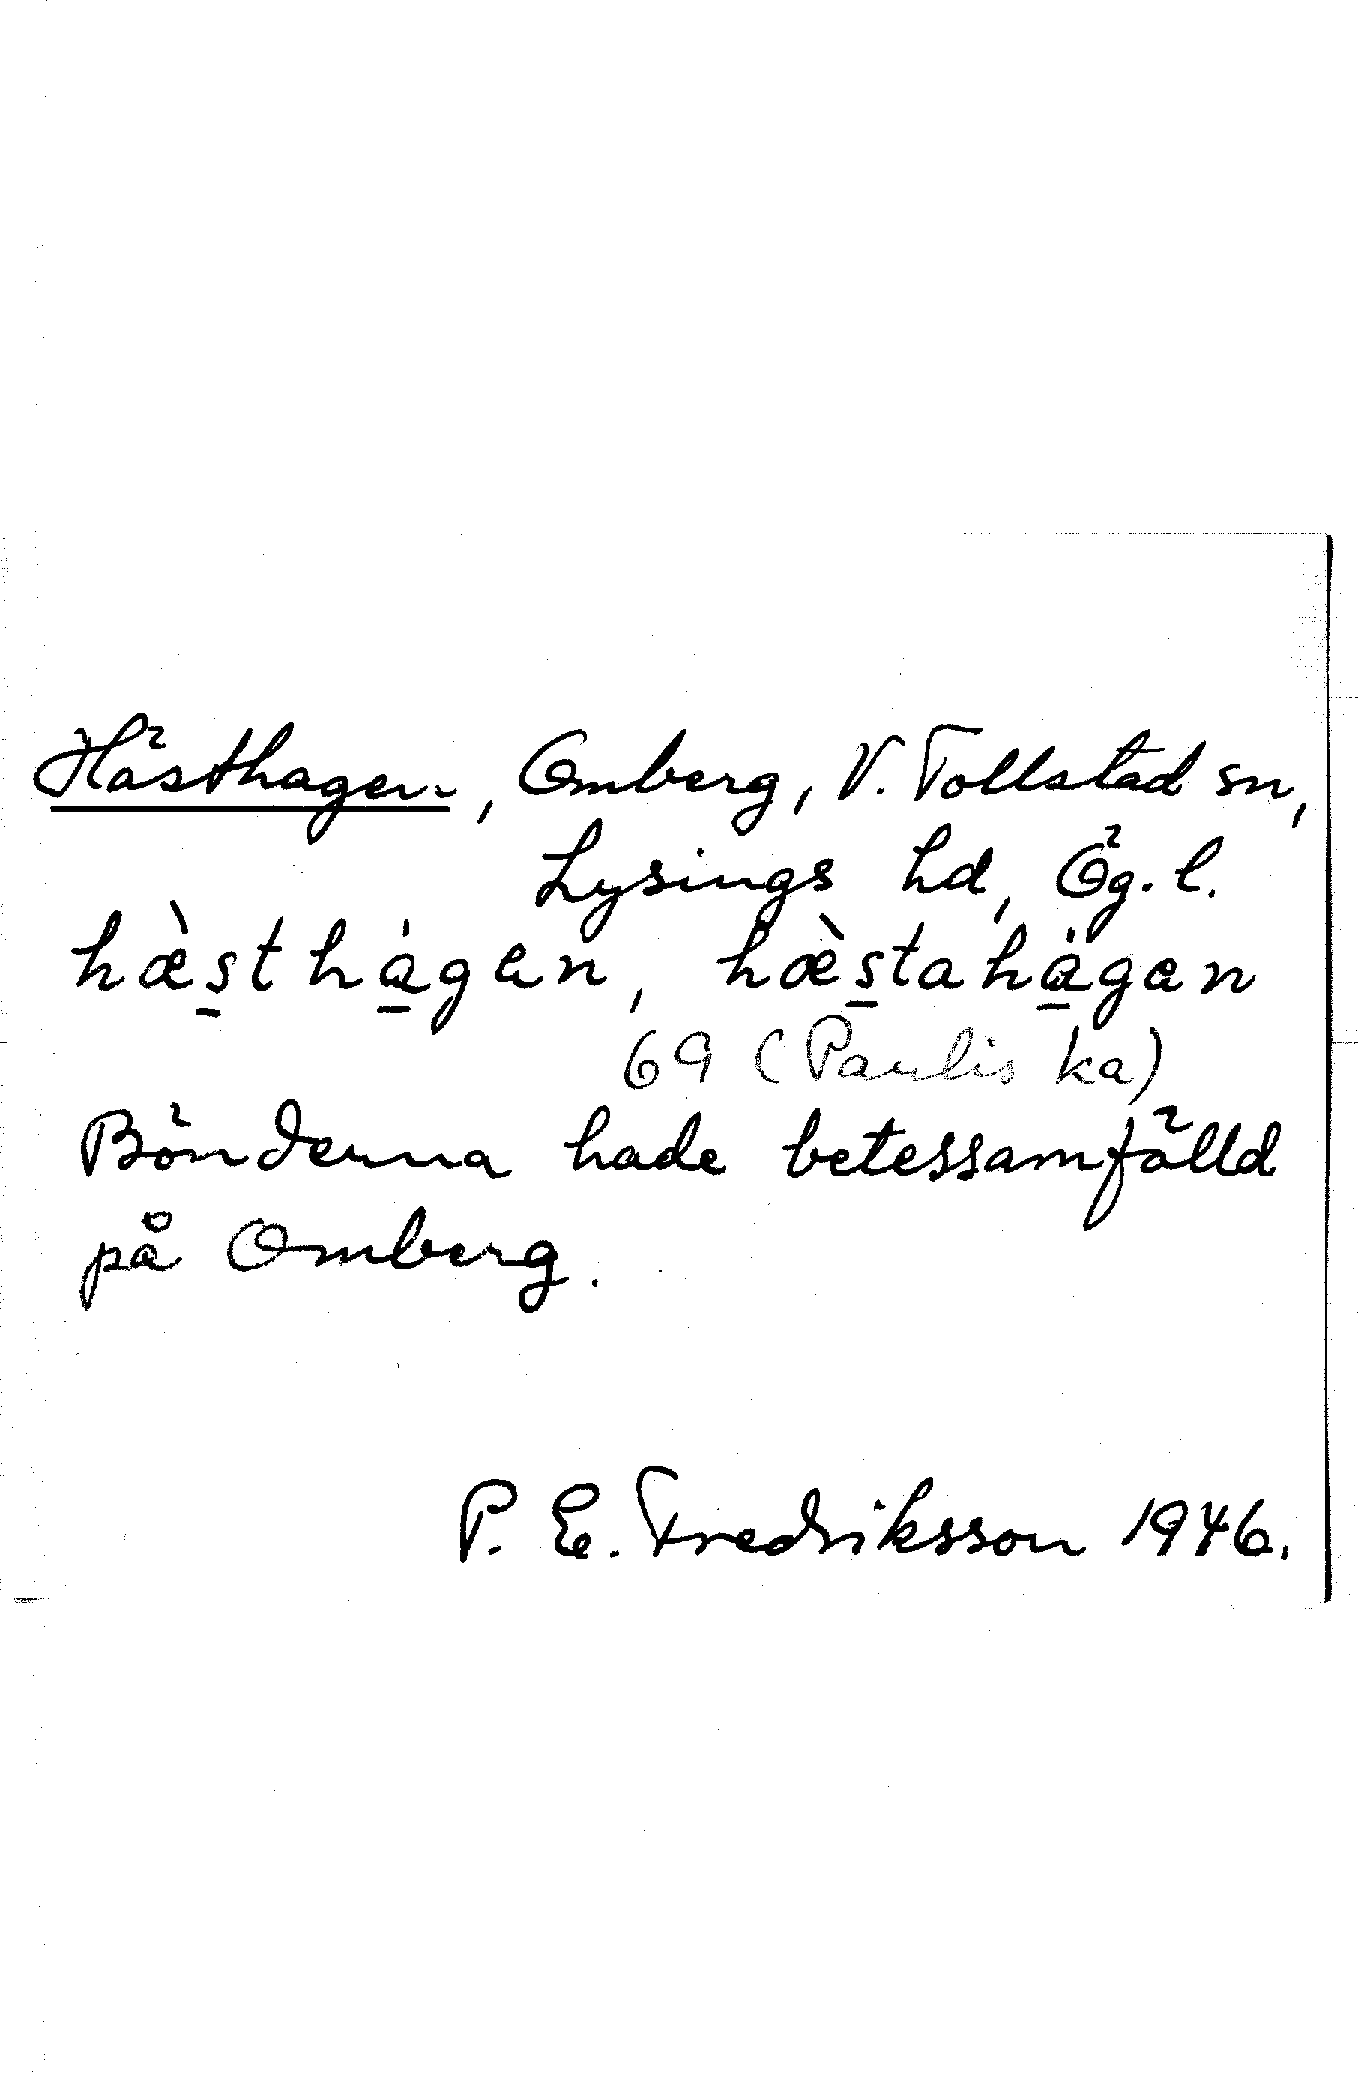 Hästhagen, Omberg, V. Tollstad sn,
Lysings hd, Ög. l.
hæ̀s̲thá̲gen, hæ̀s̲tahá̲gen
69 (Paulis ka)
Bönderna hade betessamfälld
på Omberg.
P. E. Fredriksson 1946.